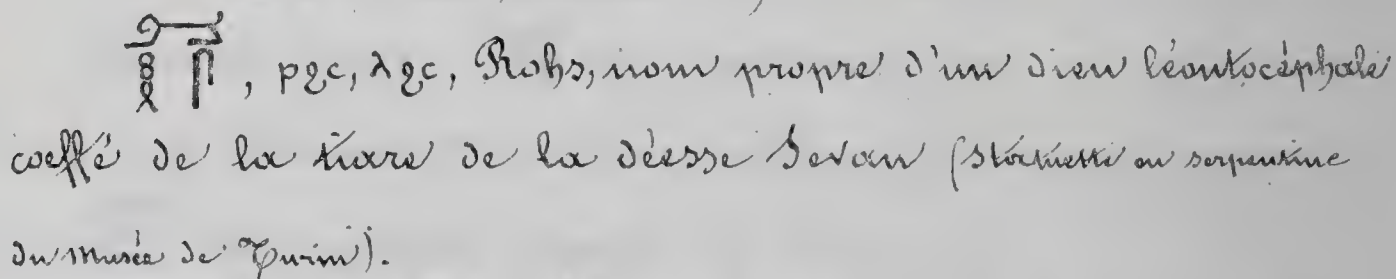 , ⲣϩⲥ, ⲗϩⲥ, Rohs, nom propre d'un dieu léontocéphale
coeffé de la tiare de la déesse Sevan (statuette en serpentine
du musée de Turin).